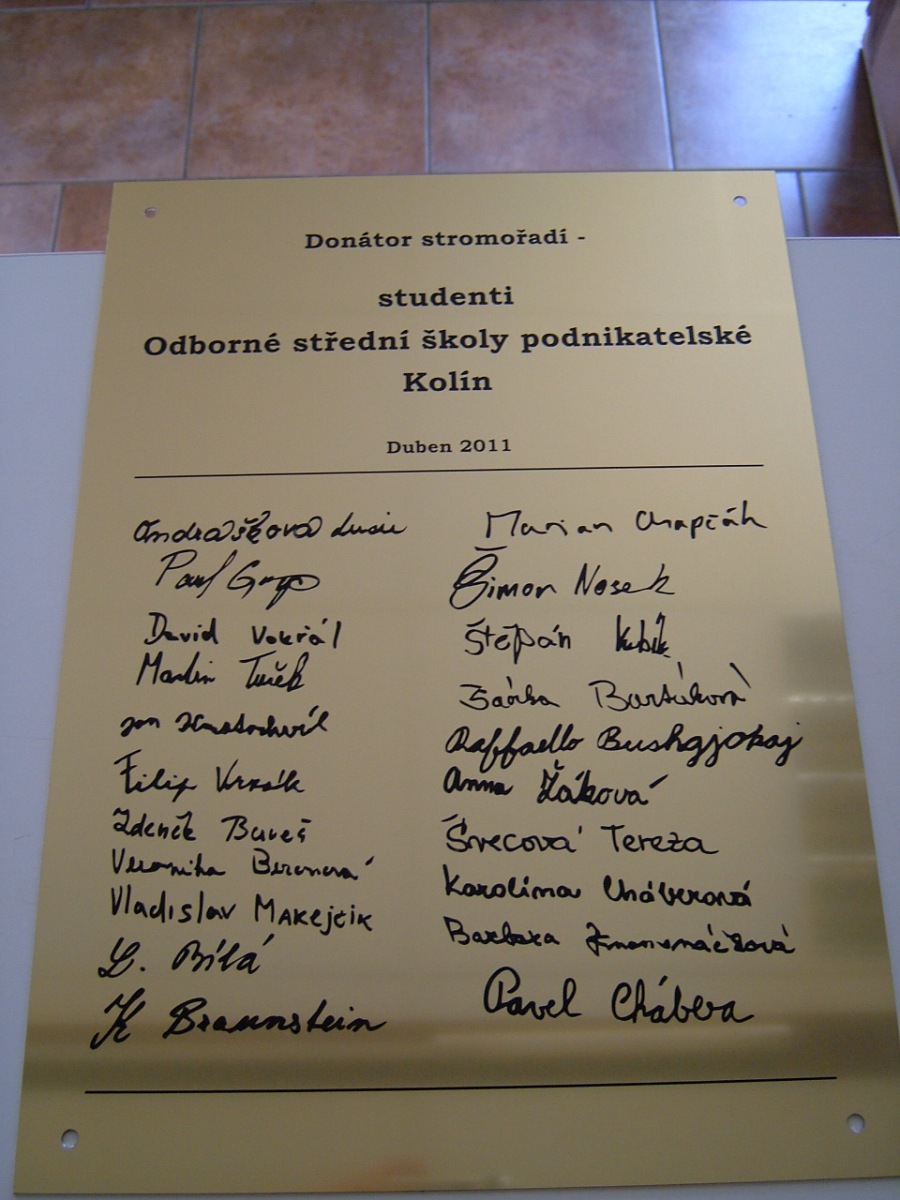 Donátor stromořadí -
studenti
Odborné střední školy podnikatelské
Kolín
Duben 2011
Andrašková Lucie
Pavel
David Vokřál
Martin Tuček
Jan Kratochvíl
Filip
Zdeněk Bureš
Veronika Beranová
Vladislav Makejčik
L. Bílá
K Braunstein
Marian Chapčák
Šimon Nosek
Štěpán Kubík
Šárka Bartůňková
Raffaello Bushgjokaj
Anna Žáková
Švecová Tereza
Karolína Cháberová
Barbara
Pavel Chábera